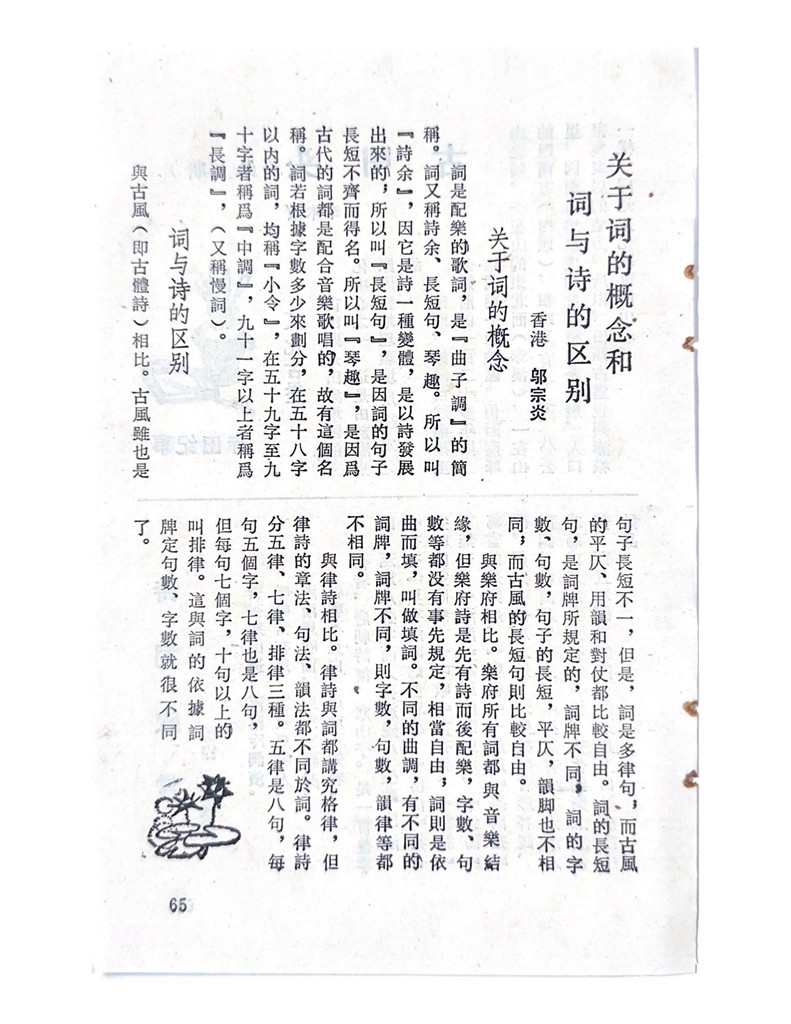 关于词的概念和
词与诗的区别
香港　邬宗炎
关于词的概念
詞是配樂的歌詞，是『曲子調』的簡
稱。詞又稱詩余、長短句、琴趣。所以叫
『詩余』，因它是詩一種變體，是以詩發展
出來的，所以叫『長短句』，是因詞的句子
長短不齊而得名。所以叫『琴趣』，是因爲
古代的詞都是配合音樂歌唱的，故有這個名
稱。詞若根據字數多少來劃分，在五十八字
以内的詞，均稱『小令』，在五十九字至九
十字者稱爲『中調』，九十一字以上者稱爲
『長調』，（又稱慢詞）。
词与诗的区别
與古風（即古體詩）相比。古風雖也是
句子長短不一，但是，詞是多律句，而古風
的平仄、用韻和對仗都比較自由。詞的長短
句，是詞牌所規定的，詞牌不同，詞的字
數、句數，句子的長短，平仄，韻脚也不相
同，而古風的長短句則比較自由。
與樂府相比。樂府所有詞都與音樂結
緣，但樂府詩是先有詩而後配樂，字數、句
數等都没有事先規定，相當自由，詞則是依
曲而填，叫做填詞。不同的曲調，有不同的
詞牌，詞牌不同，則字數，句數，韻律等都
不相同。
與律詩相比。律詩與詞都講究格律，但
律詩的章法、句法、韻法都不同於詞。律詩
分五律、七律、排律三種。五律是八句，每
句五個字，七律也是八句，
但每句七個字，十句以上的
叫排律。這與詞的依據詞
牌定句數、字數就很不同
了。
65